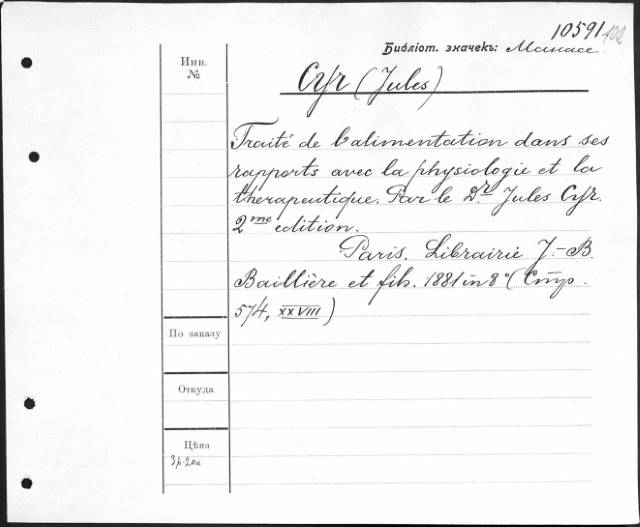 10591
102
Библіот. значекъ: Манасе.
Инв.
№
Cyr (Jules)
Traité de l'alimentation dans ses
rapports avec la physiologie et la
therapeutique. Par le Dr. Jules Cyr.
2me edition.
Paris. Librairie J.-B.
Baillière et fils. 1881 in 8° (Cтр.
574, XXVIII)
По заказу
Откуда
Цѣна
3р. 20к